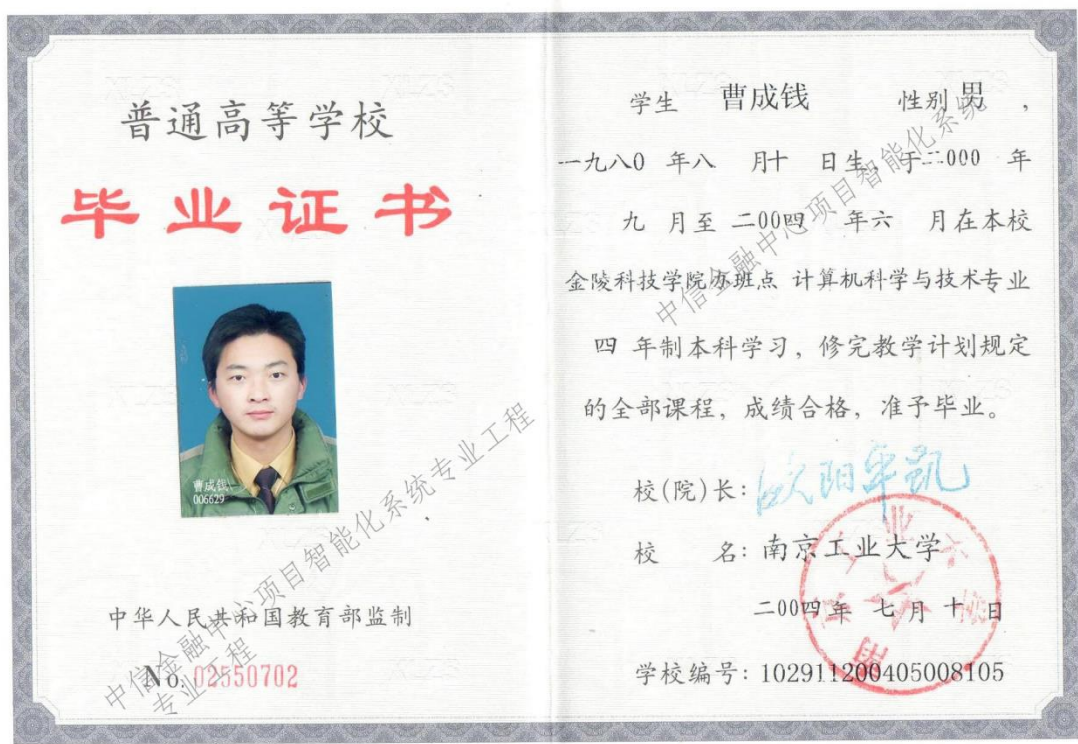 普通高等学校
毕业证书
曹成钱
006629
中华人民共和国教育部监制
No 02550702
学生 曹成钱 性别 男 ,
一九八0 年八 月十 日生,于二000 年
九 月至 二00四 年六 月在本校
金陵科技学院办班点 计算机科学与技术专业
四 年制本科学习,修完教学计划规定
的全部课程,成绩合格,准予毕业。
校(院)长:欧阳平凯
校 名:南京工业大学
二00四 年 七 月 十 日
学校编号:102911200405008105
南京工业大学
中信金融中心项目智能化系统专业工程
中信金融中心项目智能化系统
专业工程